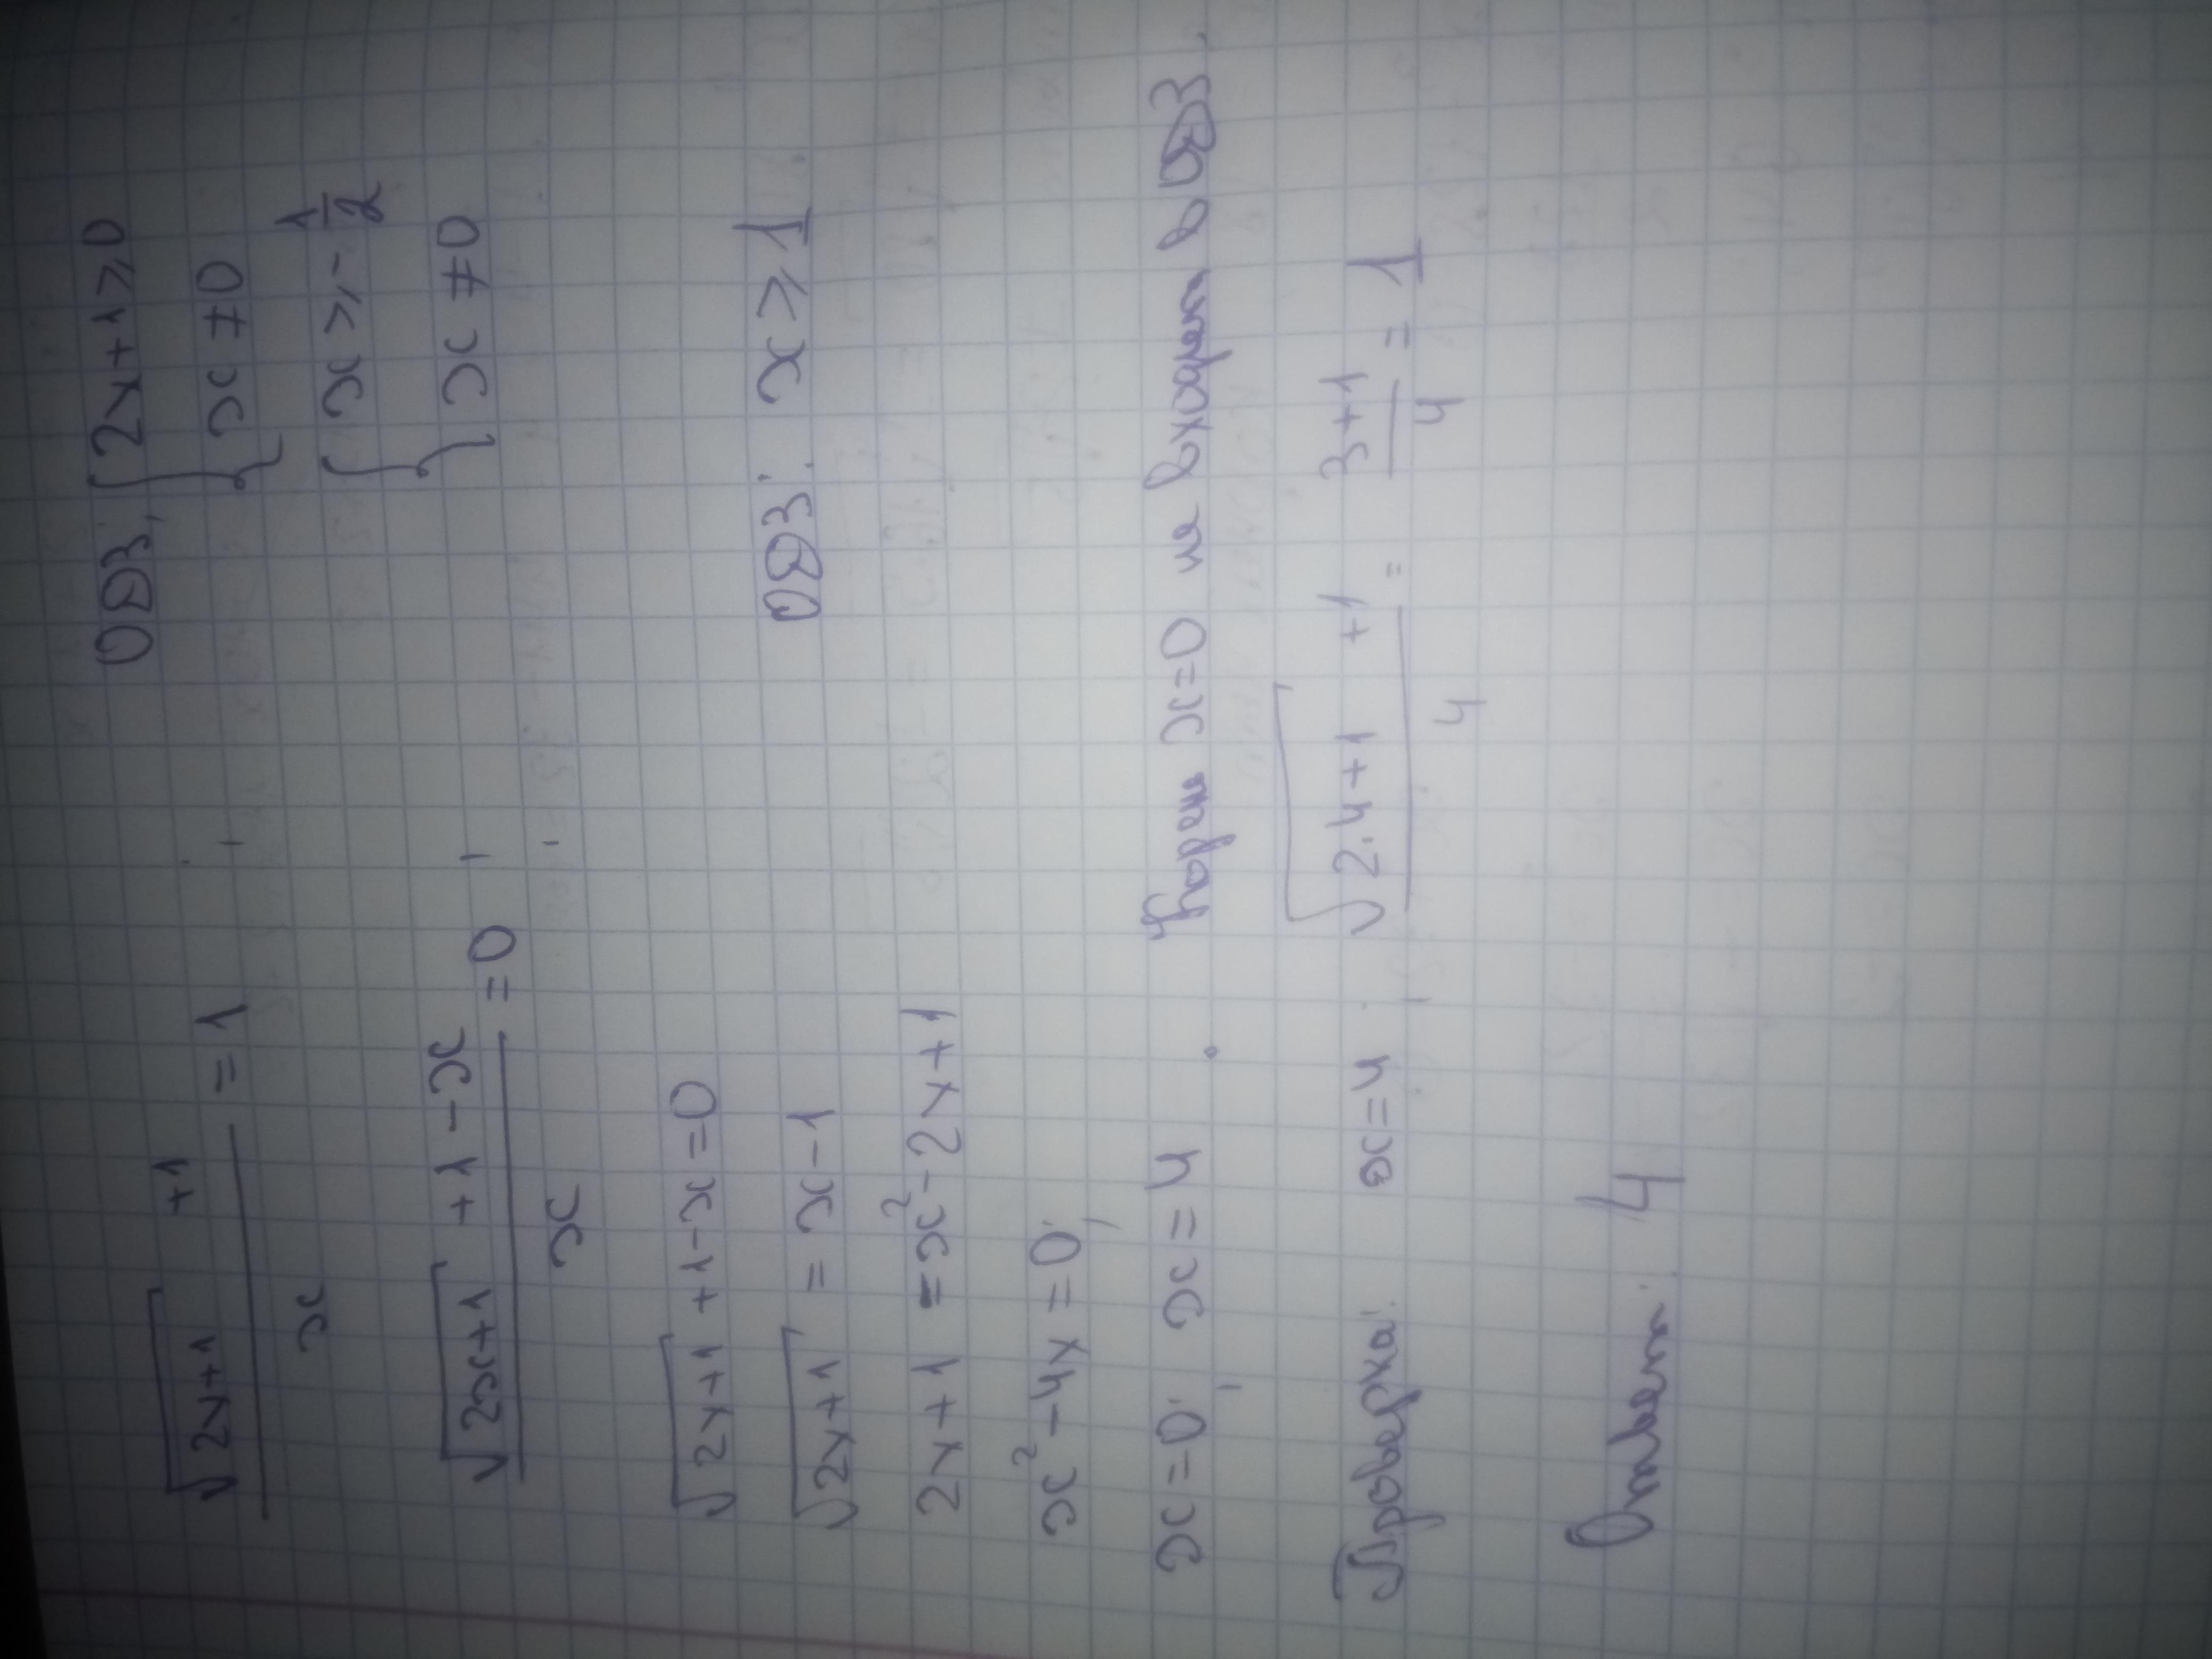 (√(2x+1) +1)/x = 1 ОДЗ: { 2x+1 ≥ 0
x ≠ 0
{ x ≥ -1/2
(√(2x+1) +1-x)/x = 0 x ≠ 0
√(2x+1) +1-x=0
√(2x+1) = x-1 ОДЗ: x ≥ 1
2x+1 = x²-2x+1
x²-4x=0;
x=0; x=4. Корень x=0 не входит в ОДЗ.
Проверка: x=4: (√(2·4+1) +1)/4 = (3+1)/4 = 1
Ответ: 4